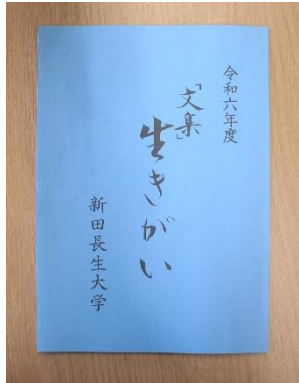 令和六年度
「文集」
生きがい
新田長生大学